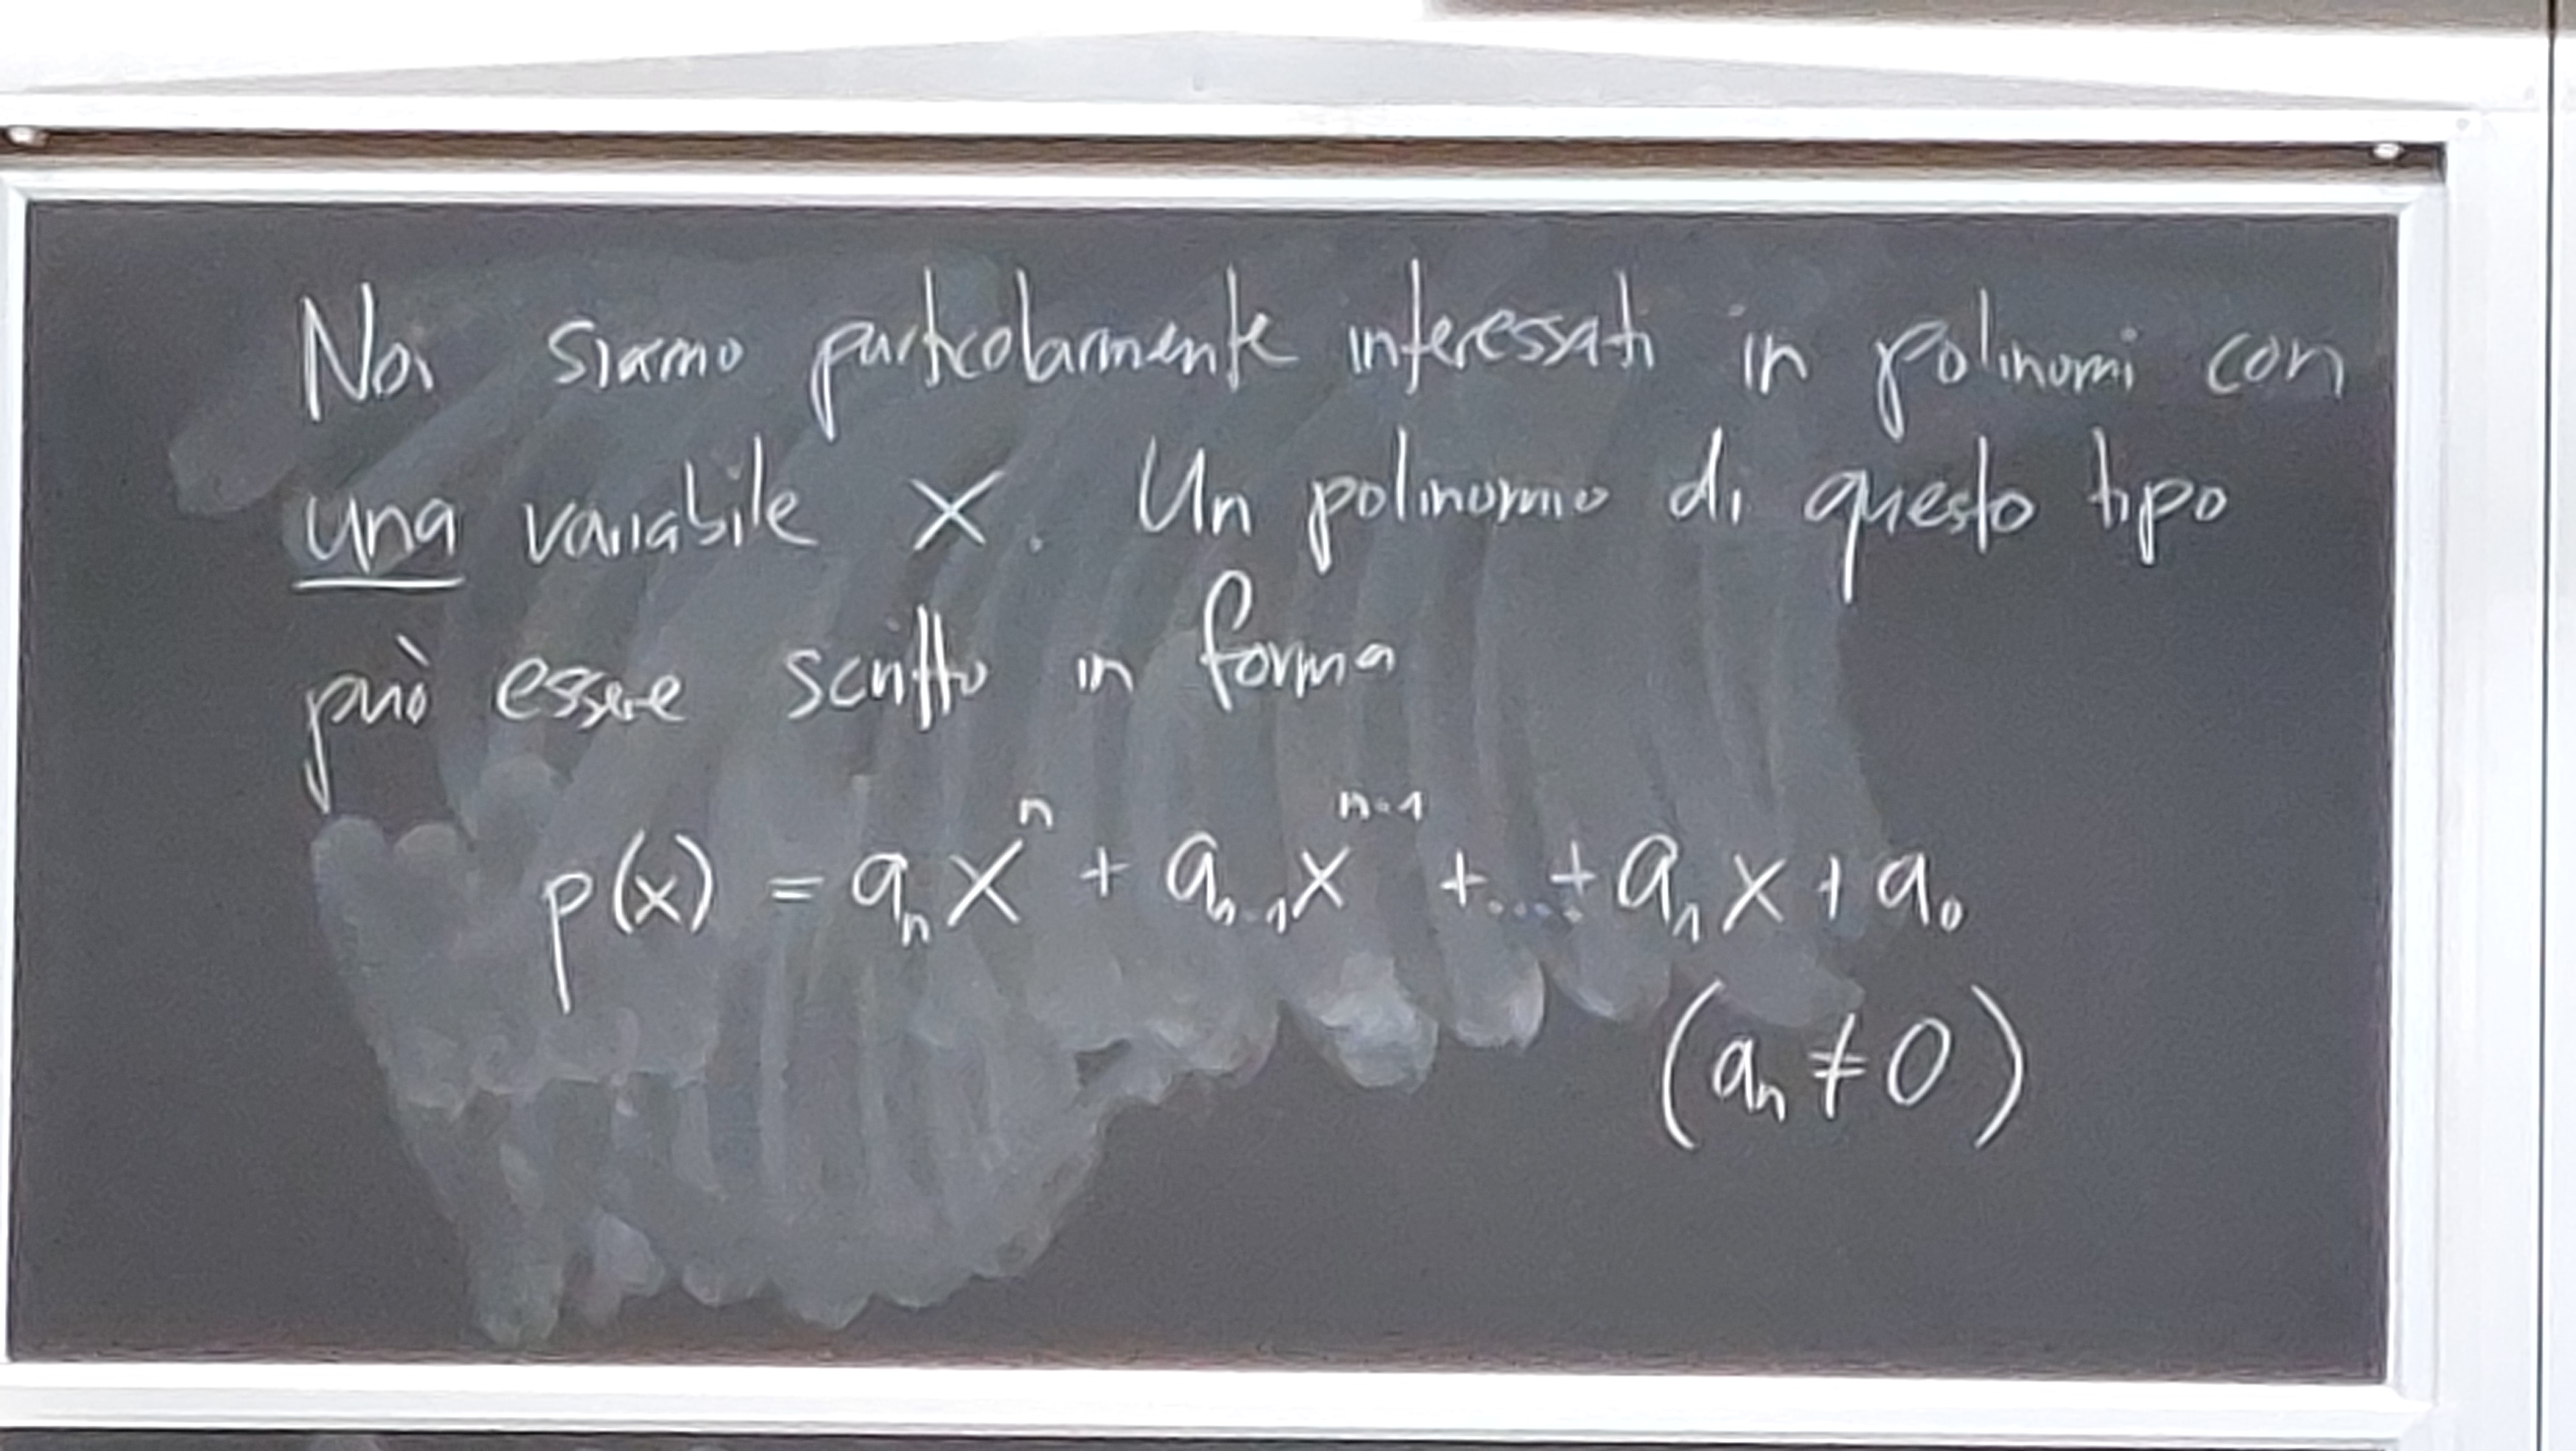 Noi siamo particolarmente interessati in polinomi con
una variabile x. Un polinomio di questo tipo
può essere scritto in forma
p(x) = aₙxⁿ + aₙ₋₁xⁿ⁻¹ + ... + a₁x + a₀
(aₙ ≠ 0)